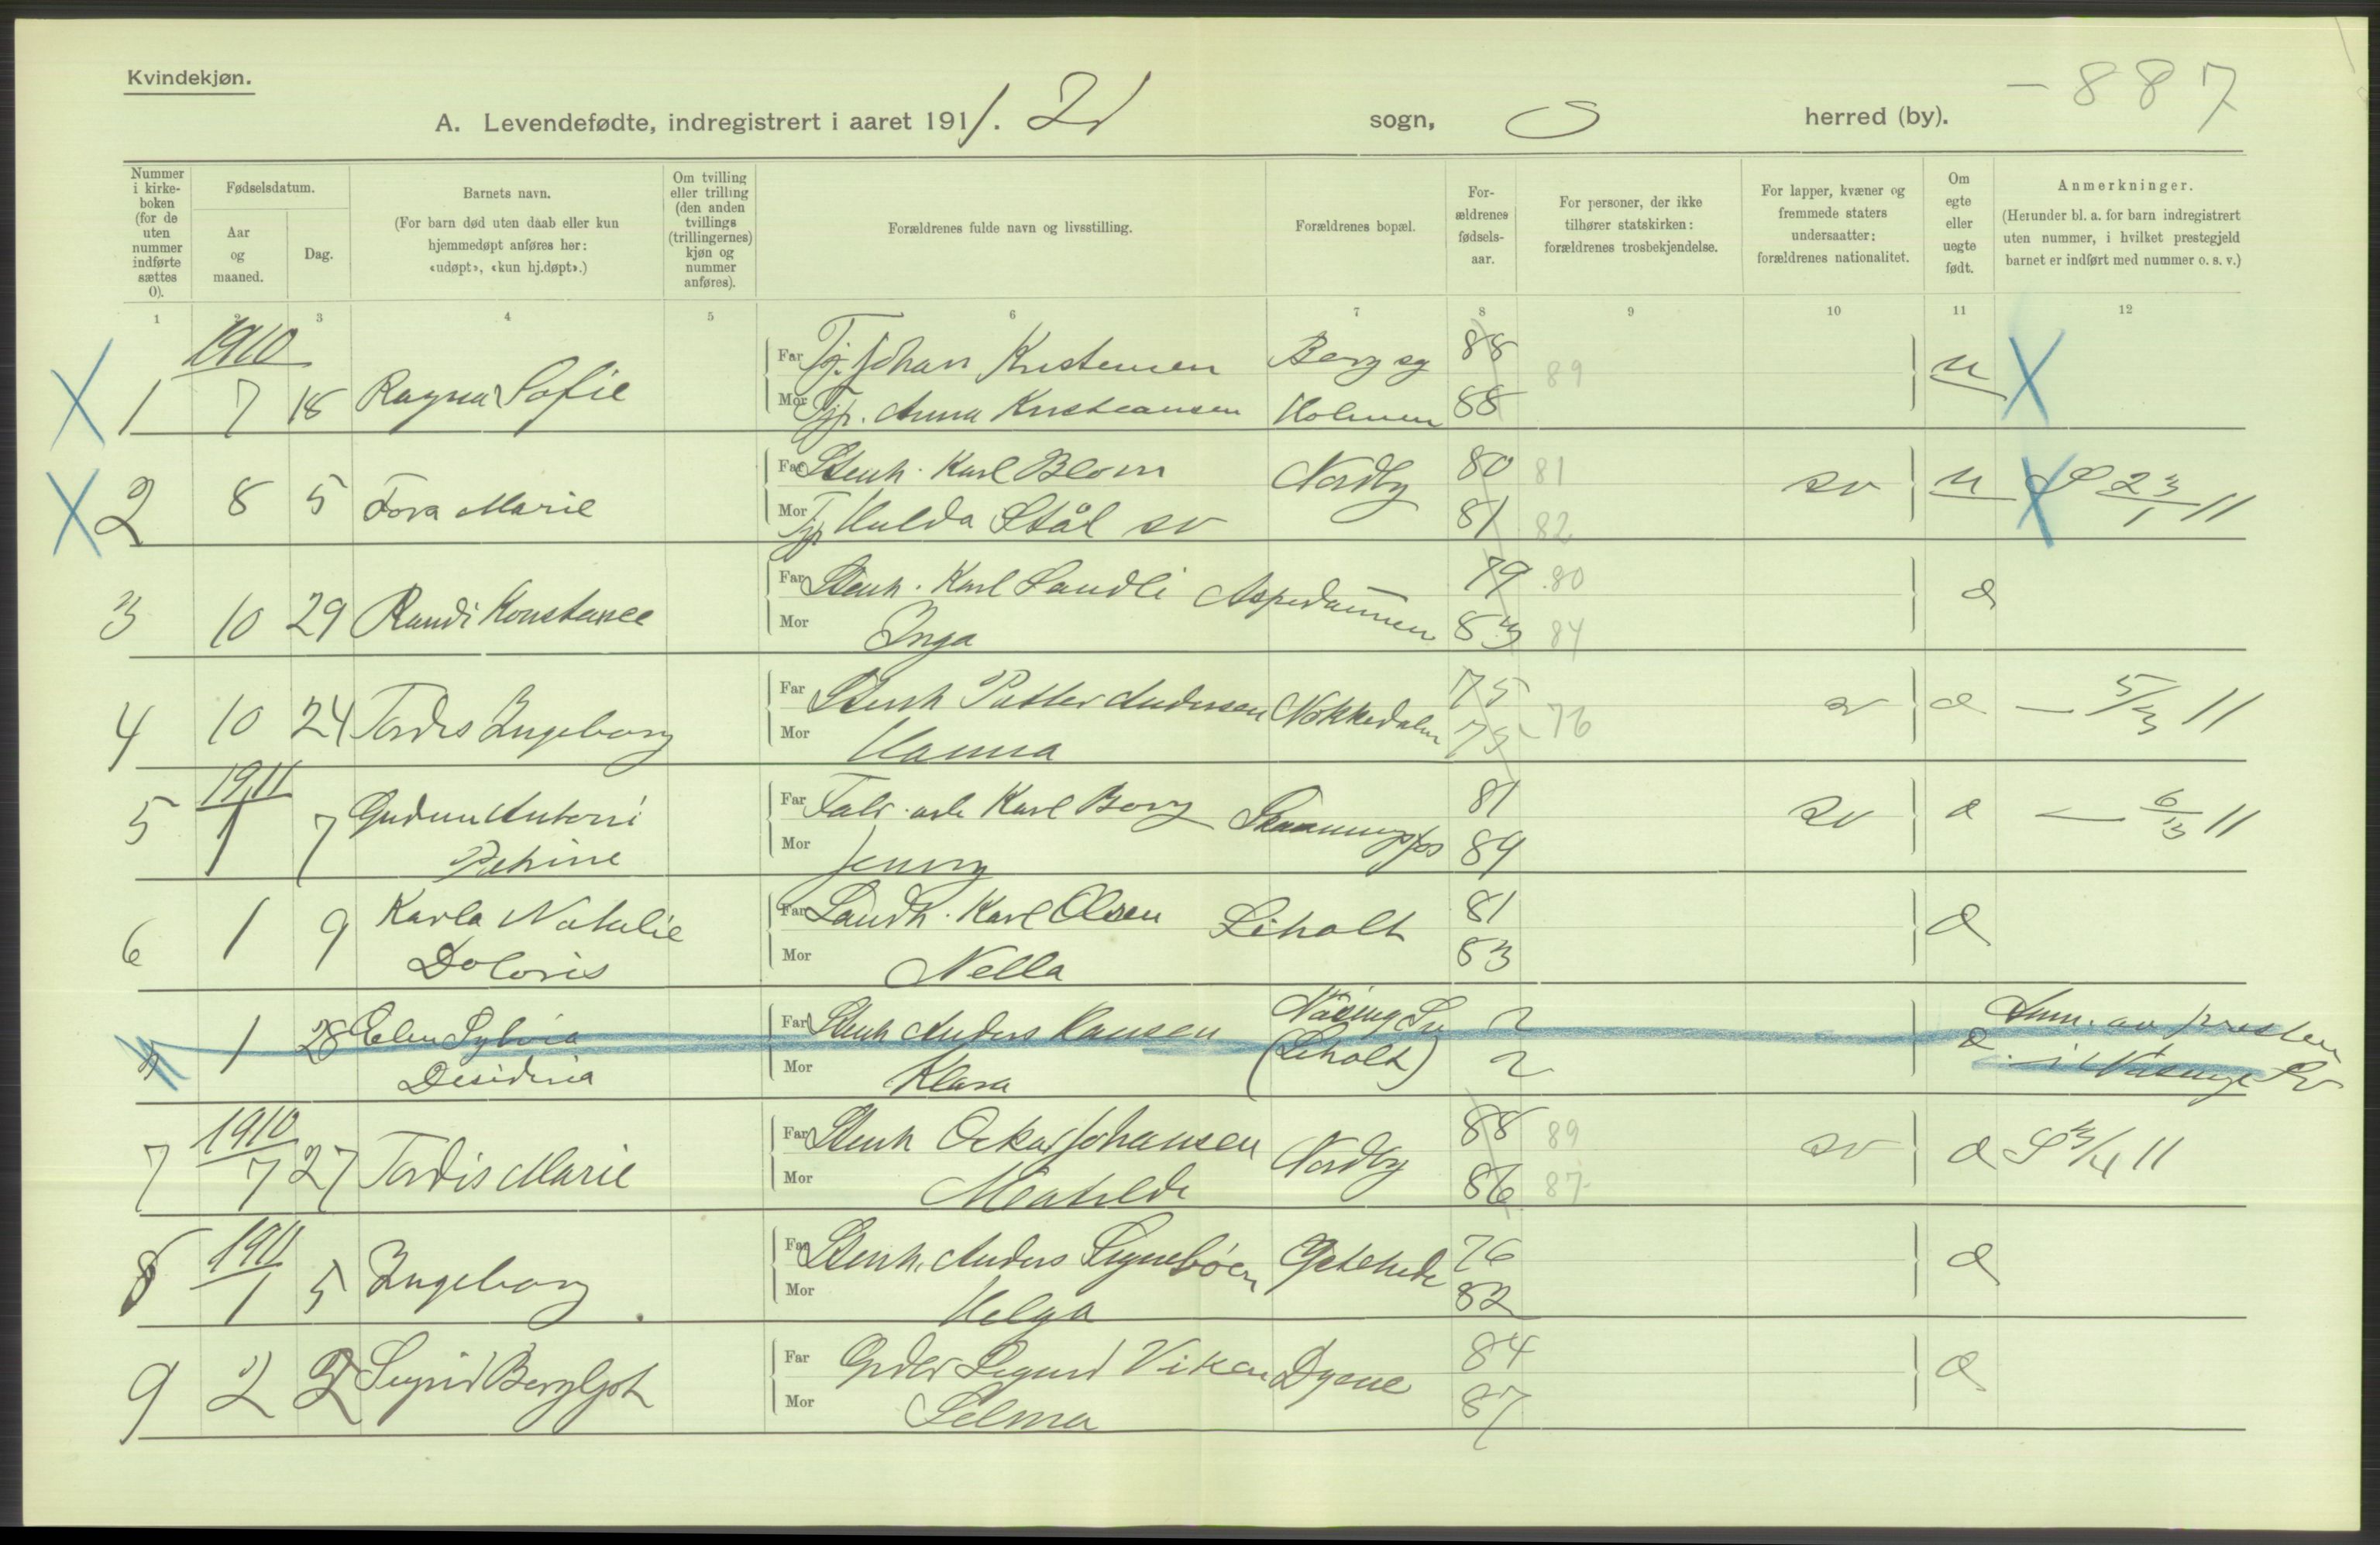 Kvindekjøn.
- 887
A. Levendefødte, indregistrert i aaret 1911. sogn, herred (by).
Nummer i kirke-boken (for de uten nummer indførte sættes 0).
Fødselsdatum.
Aar og maaned.
Dag.
Barnets navn.
(For barn død uten daab eller kun hjemmedøpt anføres her: «udøpt», «kun hj.døpt».)
Om tvilling eller trilling (den anden tvillings (trillingernes) kjøn og nummer anføres).
Forældrenes fulde navn og livsstilling.
Forældrenes bopæl.
For-ældrenes fødsels-aar.
For personer, der ikke tilhører statskirken: forældrenes trosbekjendelse.
For lapper, kvæner og fremmede staters undersaatter: forældrenes nationalitet.
Om egte eller uegte født.
Anmerkninger.
(Herunder bl. a. for barn indregistrert uten nummer, i hvilket prestegjeld barnet er indført med nummer o. s. v.)
1 2 3 4 5 6 7 8 9 10 11 12
1910
X 1 7 18 Ragna Sofie
Far Tj. Johan Kristensen Berg sg 88 89
Mor Tjp. Anna Kristiansen Holmen 88
u X
X 2 8 5 Tora Marie
Far Stenh. Karl Blom Nordby 80 81
Mor Tjp Hulda Stål sv 81 82
sv u X S 23/1 11
3 10 29 Randi Konstance
Far Stenh. Karl Sandli Aspedammen 79 80
Mor Inga 83 84
e
4 10 24 Tordis Ingeborg
Far Stenh Petter Andersen Nökkedalen 75
Mor Hanna 75 76
sv e — 5/3 11
1911
5 1 7 Gudrun Antoni Petrine
Far Fabr. arb Karl Borg 81
Mor Jenny 89
sv e — 6/3 11
6 1 9 Karla Natalie Doloris
Far Landh. Karl Olsen Liholt 81
Mor Nella 83
e
1 28 Elen Sylvia Desideria
Far Stenh Anders Hansen Näsinge Sv 2
Mor Klara (Liholt) 2
e Anm. av presten i Näsinge Sv
1910
7 7 27 Tordis Marie
Far Stenh Oskar Johansen Nordby 88 89
Mor Matilde 86 87
sv e S 3/4 11
1911
8 1 5 Ingeborg
Far Stenh. Anders Signebøen 76
Mor Helga 82
e
9 2 2 Sigrid Bergljot
Far Grdbr Sigurd Viken Dyrne 84
Mor Selma 87
e